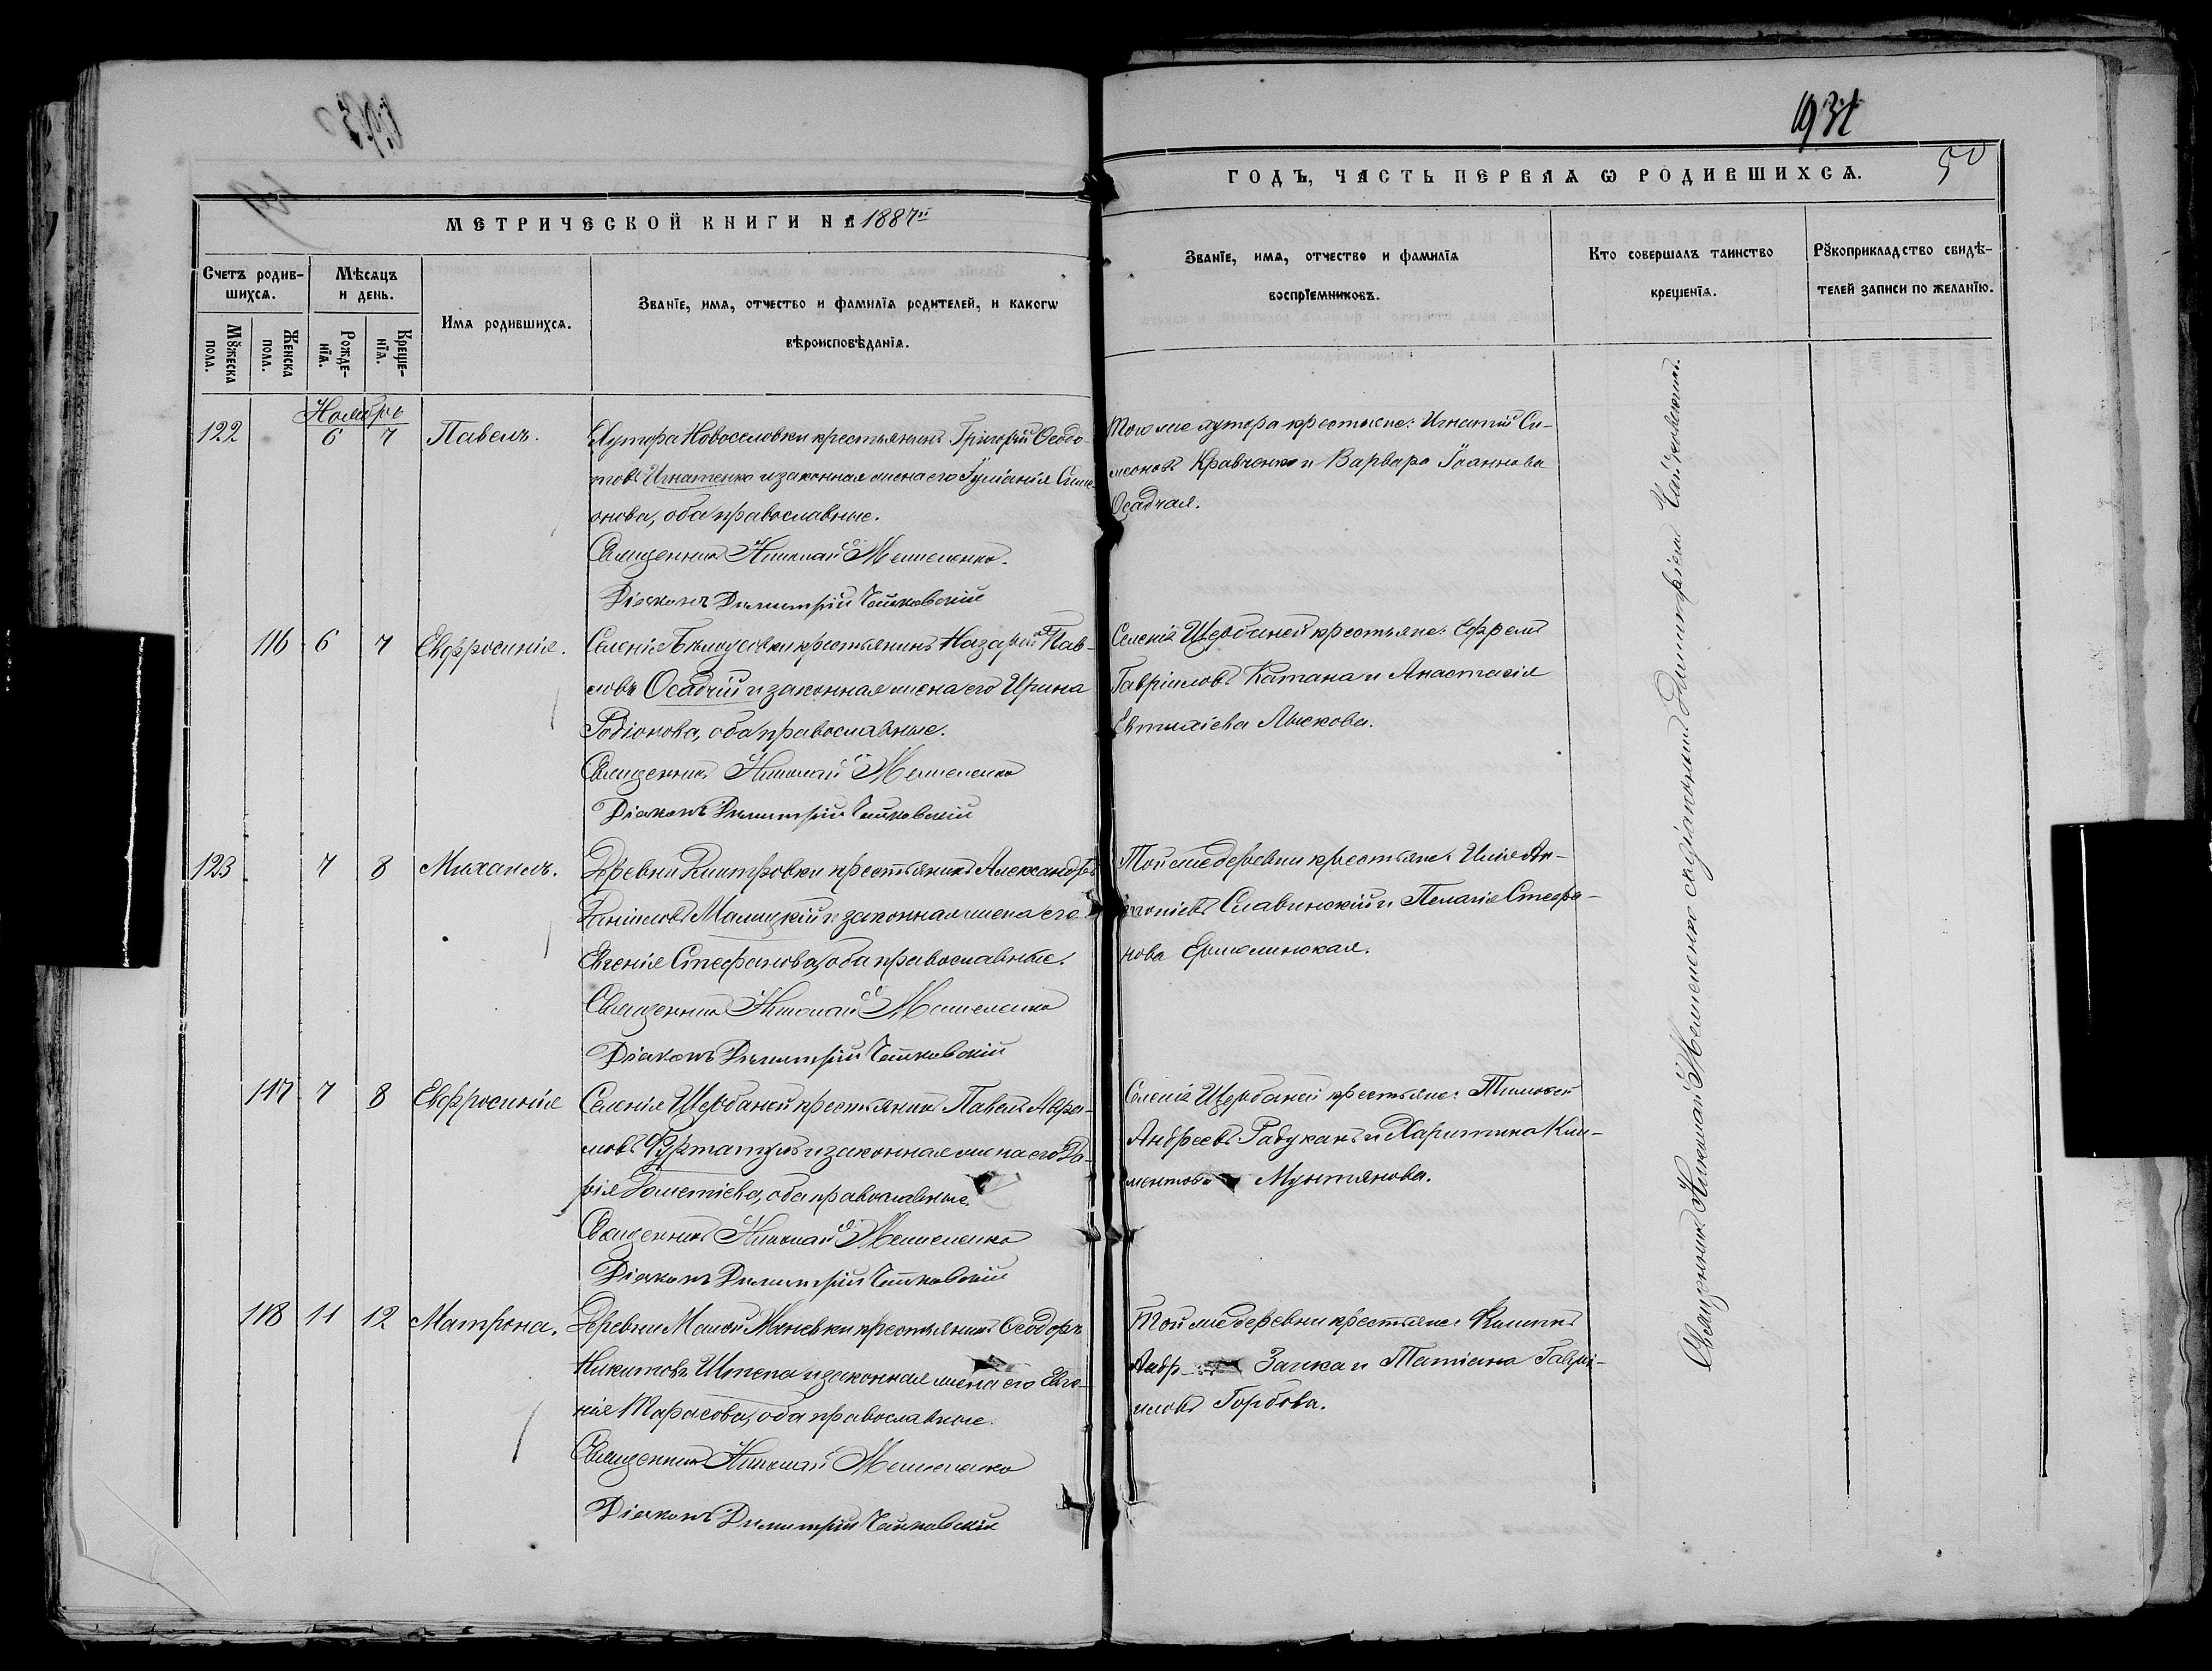 1931
50
МЕТРИЧЕСКОЙ КНИГИ НА 1887й
ГОДЪ, ЧАСТЬ ПЕРВАѦ Ѡ РОДИВШИХСѦ.
Счетъ родив-
шихсѧ.
Мѣсѧцъ
и день.
Имѧ родившихсѧ.
Званїе, имѧ, отчество и фамилїѧ родителей, и какогѡ
вѣроисповѣданїѧ.
Мꙋжеска
пола.
Женска
пола.
Рожде-
нїѧ.
Креще-
нїѧ.
Званїе, имѧ, отчество и фамилїѧ
воспрїемниковъ.
Кто совершалъ таинство
крещенїѧ.
Рꙋкоприкладство свидѣ-
телей записи по желанїю.
Ноябрь
122 6 7 Павелъ.
Хутора Новоселовки крестьянинъ Григорій Ѳедо-
товъ Игнатенко и законная жена его Іуліанія Симе-
онова, оба православные.
Священникъ Николай Мешененко.
Діаконъ Димитрій Чайковскій
Того же хутора крестьяне: Игнатій Си-
меоновъ Кравченко и Варвара Іоаннова
Осадчая.
116 6 7 Евфросинія.
Селенія Бѣлоусовки крестьянинъ Назарій Пав-
ловъ Осадчій и законная жена его Ирина
Родіонова, оба православные.
Священникъ Николай Мешененко
Діаконъ Димитрій Чайковскій
Селенія Щербаней крестьяне: Ефремъ
Гавріиловъ Катана и Анастасія
Евтихіева Лыскова.
123 7 8 Михаилъ.
Деревни Дмитровки крестьянинъ Александръ
Даніиловъ Малицкій и законная жена его
Евгенія Стефанова, оба православные.
Священникъ Николай Мешененко
Діаконъ Димитрій Чайковскій
Той же деревни крестьяне: Илія Ан-
тоніевъ Славинскій и Пелагія Стефа-
нова Ермолинская.
117 7 8 Евфросинія
Селенія Щербаней крестьянинъ Павелъ Авра-
мовъ Фуртатулъ и законная жена его Да-
рія Дометіева, оба православные.
Священникъ Николай Мешененко
Діаконъ Димитрій Чайковскій
Селенія Щербаней крестьяне: Тимоѳей
Андреевъ Радуканъ и Харитина Кли-
ментова Мунтянова.
118 11 12 Матрона.
Деревни Малой Маневки крестьянинъ Ѳеодоръ
Никитовъ Штепа и законная жена его Евге-
нія Тарасова, оба православные.
Священникъ Николай Мешененко
Діаконъ Димитрій Чайковскій
Той же деревни крестьяне: Филиппъ
Андр Заика и Татіана Гаврі-
илова Горбова.
Священникъ Николай Мешененко съ діакономъ Димитріемъ Чайковскимъ.